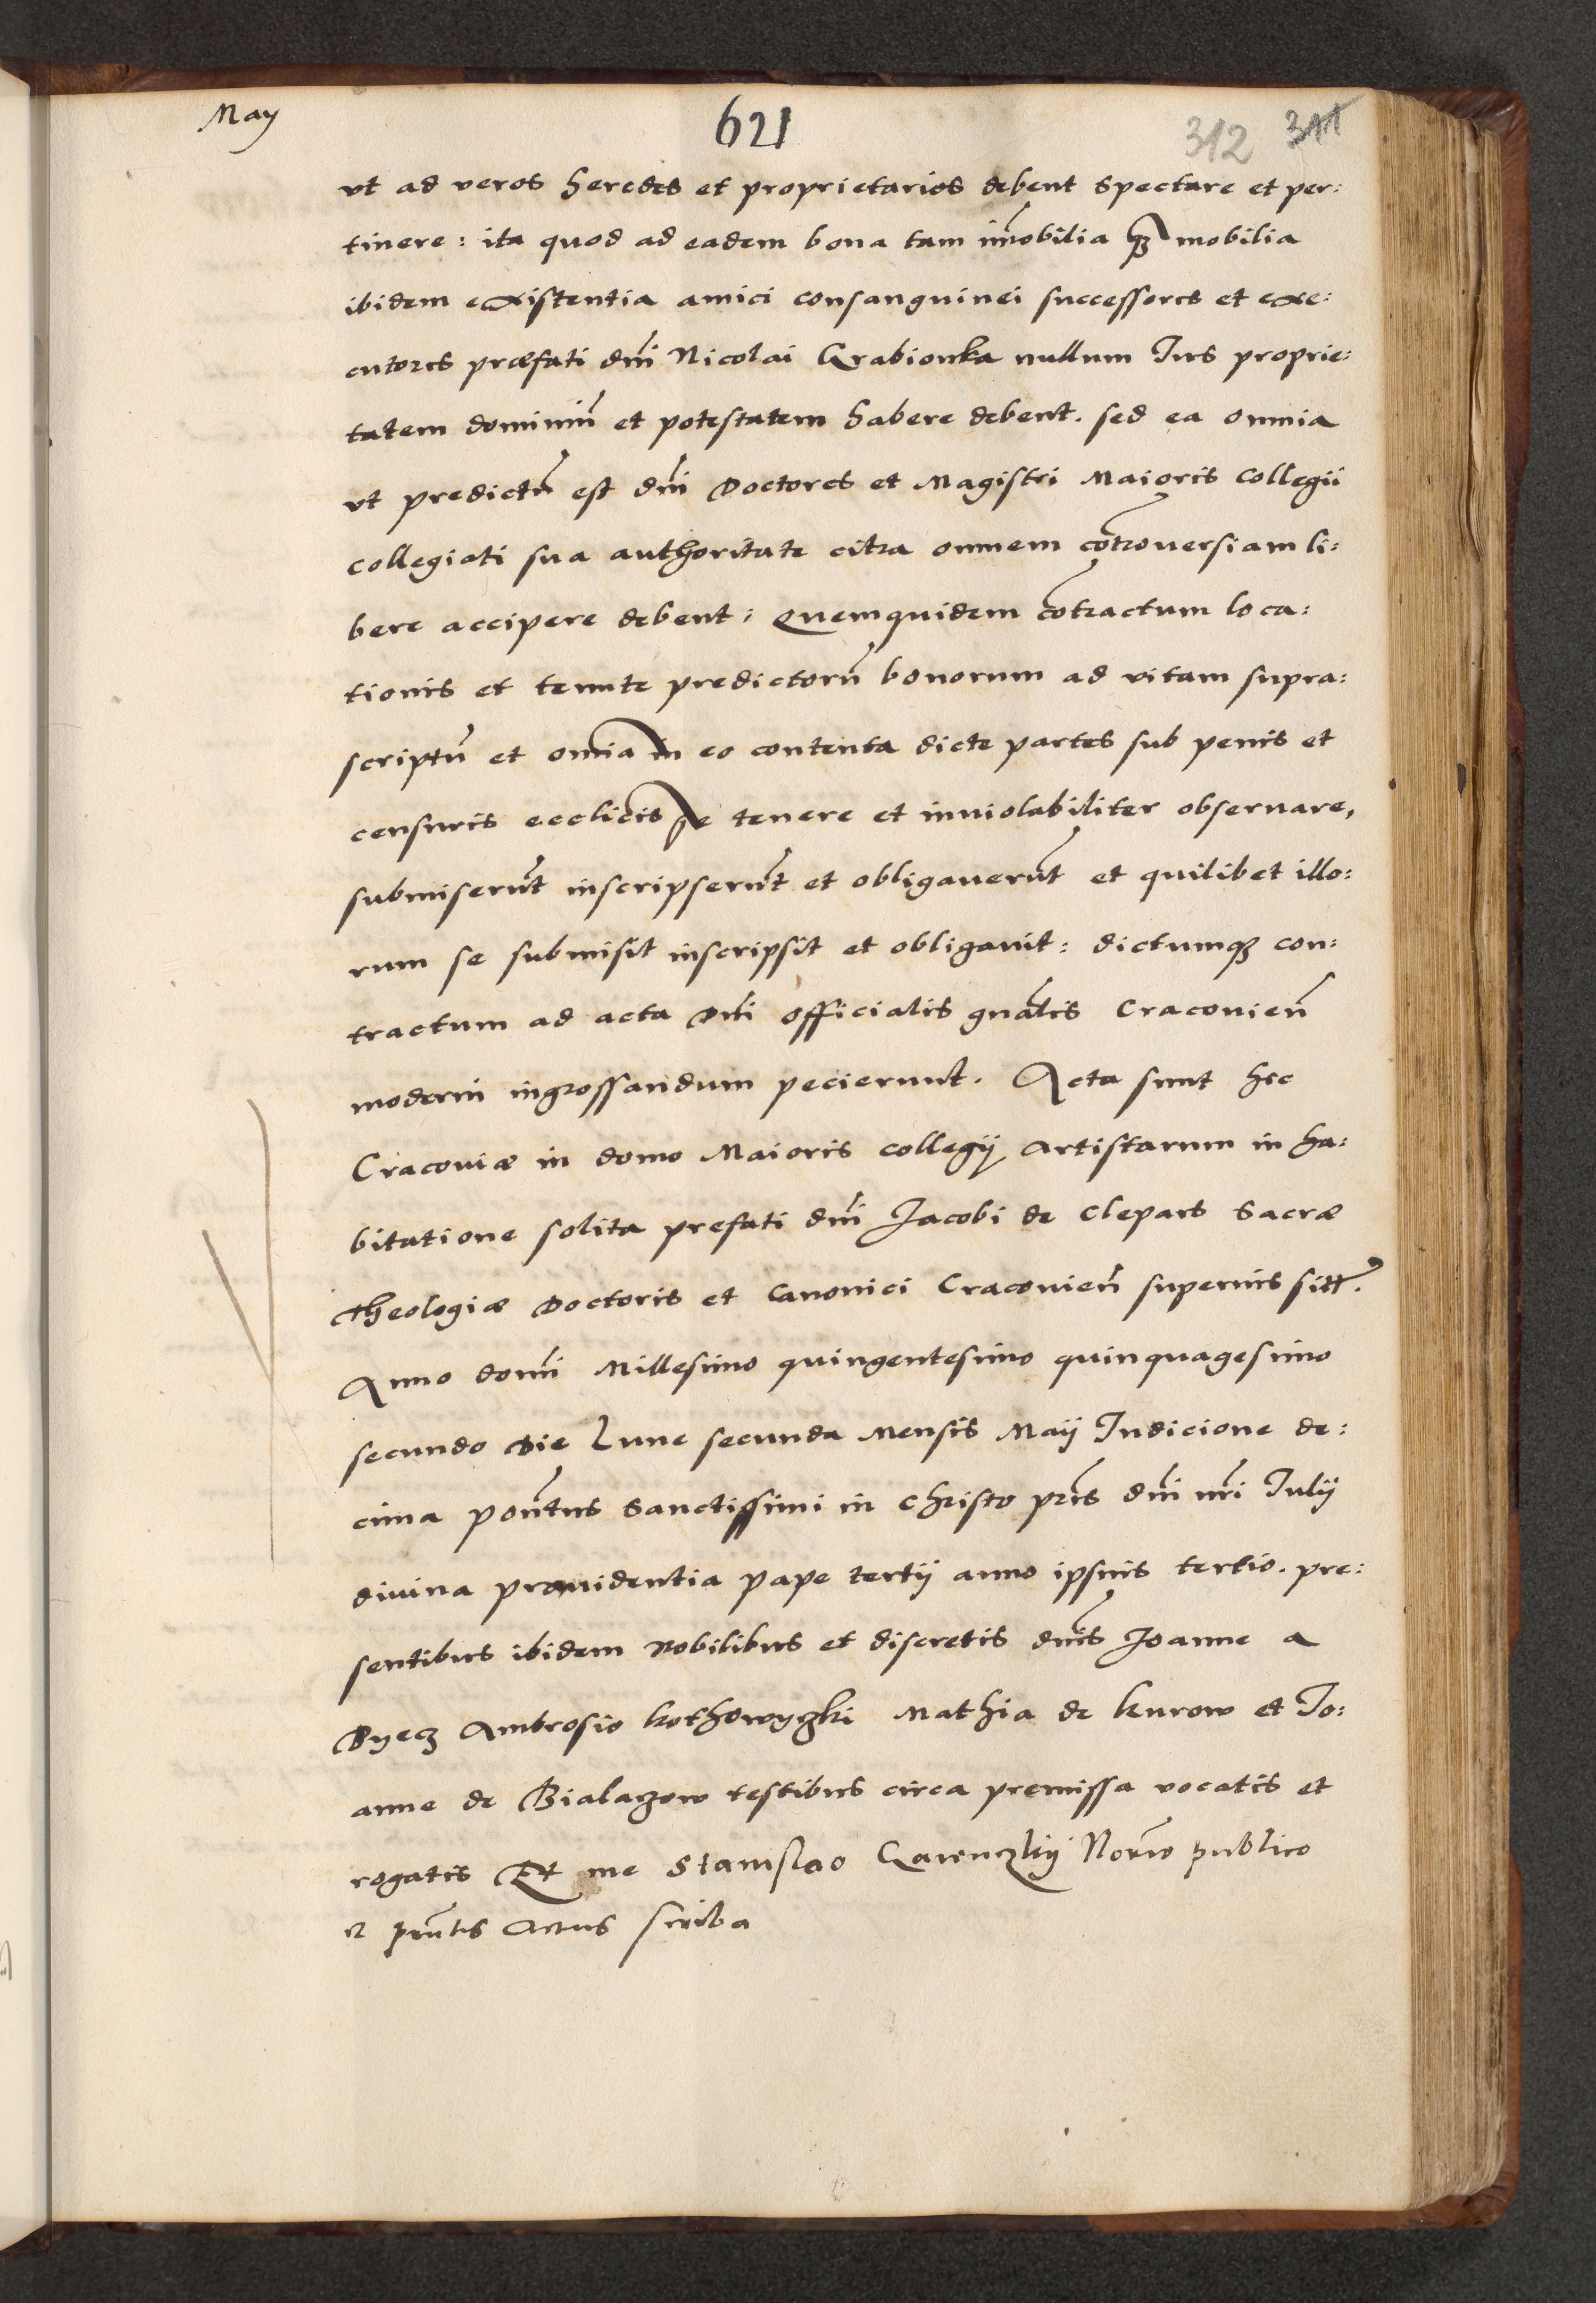 May
621
312 311
vt ad veros heredes et proprietarios debent spectare et per:
tinere: ita quod ad eadem bona tam im̃obilia q̃ʒ mobilia
ibidem existentia amici consanguinei successores et exe:
cutores præfati dm̃i Nicolai Grabionka nullum Ius proprie:
tatem dominiũ et potestatem habere debent. sed ea omnia
vt predictũ est dñi Doctores et Magistri Maioris Collegii
collegiati sua authoritate citra omnem cõtrouersiam li:
bere accipere debent: Quemquidem cõtractum loca:
tionis et tenute predictorũ bonorum ad vitam supra:
scriptũ et om̃ia in eo contenta dicte partes sub penis et
censuris ecclic̃is se tenere et inuiolabiliter obseruare,
submiserũt inscripserũt et obligauerũt et quilibet illo:
rum se submisit inscripsit et obligauit: dictumqʒ con:
tractum ad acta Dñi Officialis gnãlis Cracovieñ
moderni ingrossandum pecierunt. Acta sunt hec
Cracoviæ in domo Maioris collegij Artistarum in ha:
bitatione solita prefati dñi Jacobi de Clepars Sacræ
Theologiæ Doctoris et Canonici Cracovieñ superius sitt̃.
Anno domĩ Millesimo quingentesimo quinquagesimo
secundo Die Lune secunda Mensis Maij Indicione de:
cima Pontũs Sanctissimi in Christo prĩs dñi nr̃i Iulij
divina providentia pape tertij anno ipsius tertio. pre:
sentibus ibidem Nobilibus et discretis dñis Joanne a
Dyecz Ambrosio kothowyczki Mathia de kurow et Io:
anne de Bialaczow testibus circa premissa vocatis et
rogatis Et me Stanislao Gawuczkij Norĩo publico
et prñtis Actus scriba